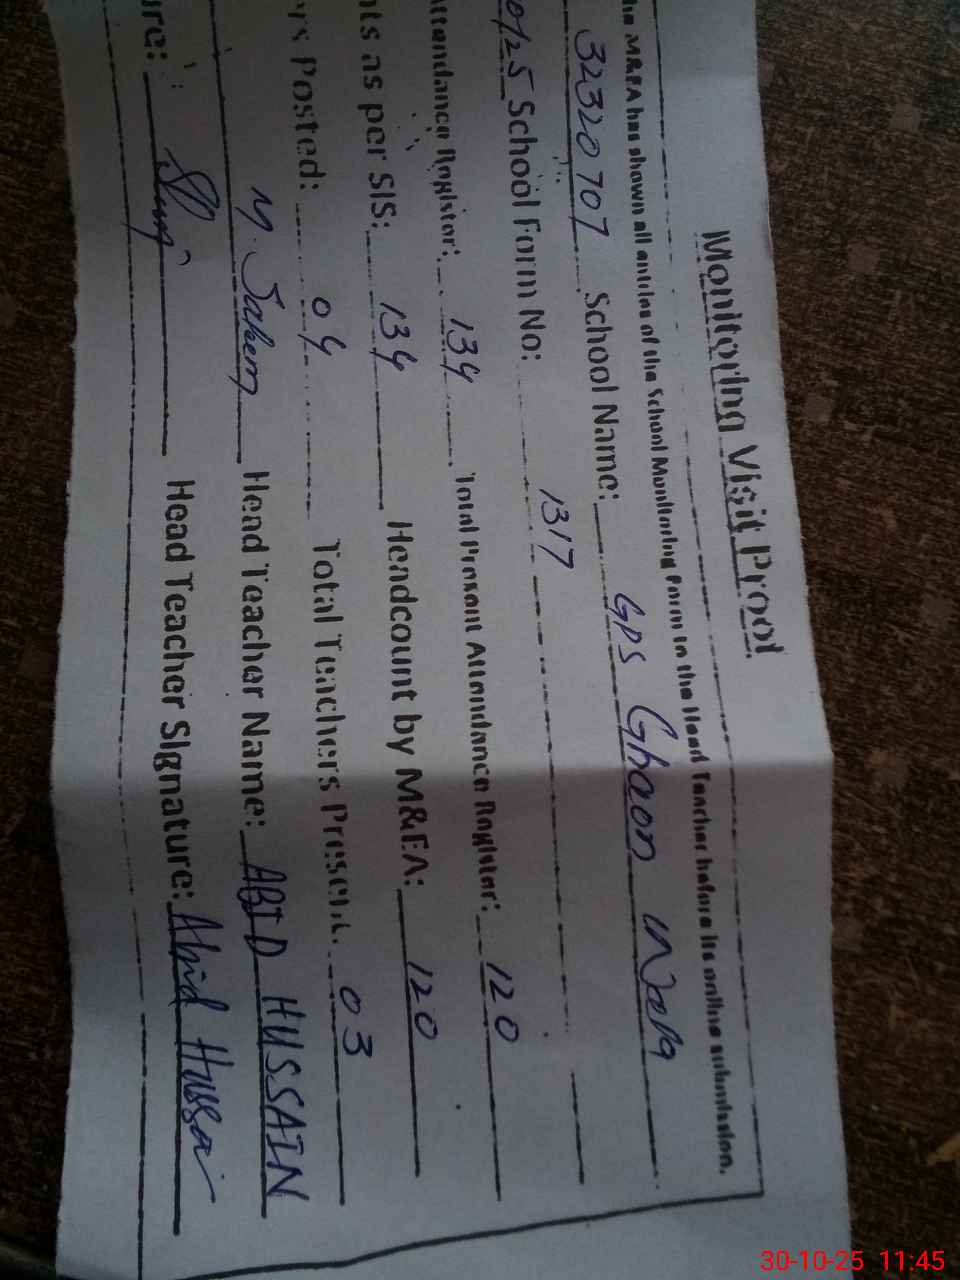 Monitoring Visit Proof
M&EA has shown all entries of the School Monitoring Form to the Head Teacher before its online submission.
32320707 School Name: GPS Ghaon Wala
/25 School Form No: 1317
Attendance Register: 134 Total Present Attendance Register: 120
nts as per SIS: 134 Headcount by M&EA: 120
rs Posted: 04 Total Teachers Present: 03
M. Saleem Head Teacher Name: ABID HUSSAIN
ure: Head Teacher Signature: Abid Hussain
30-10-25 11:45